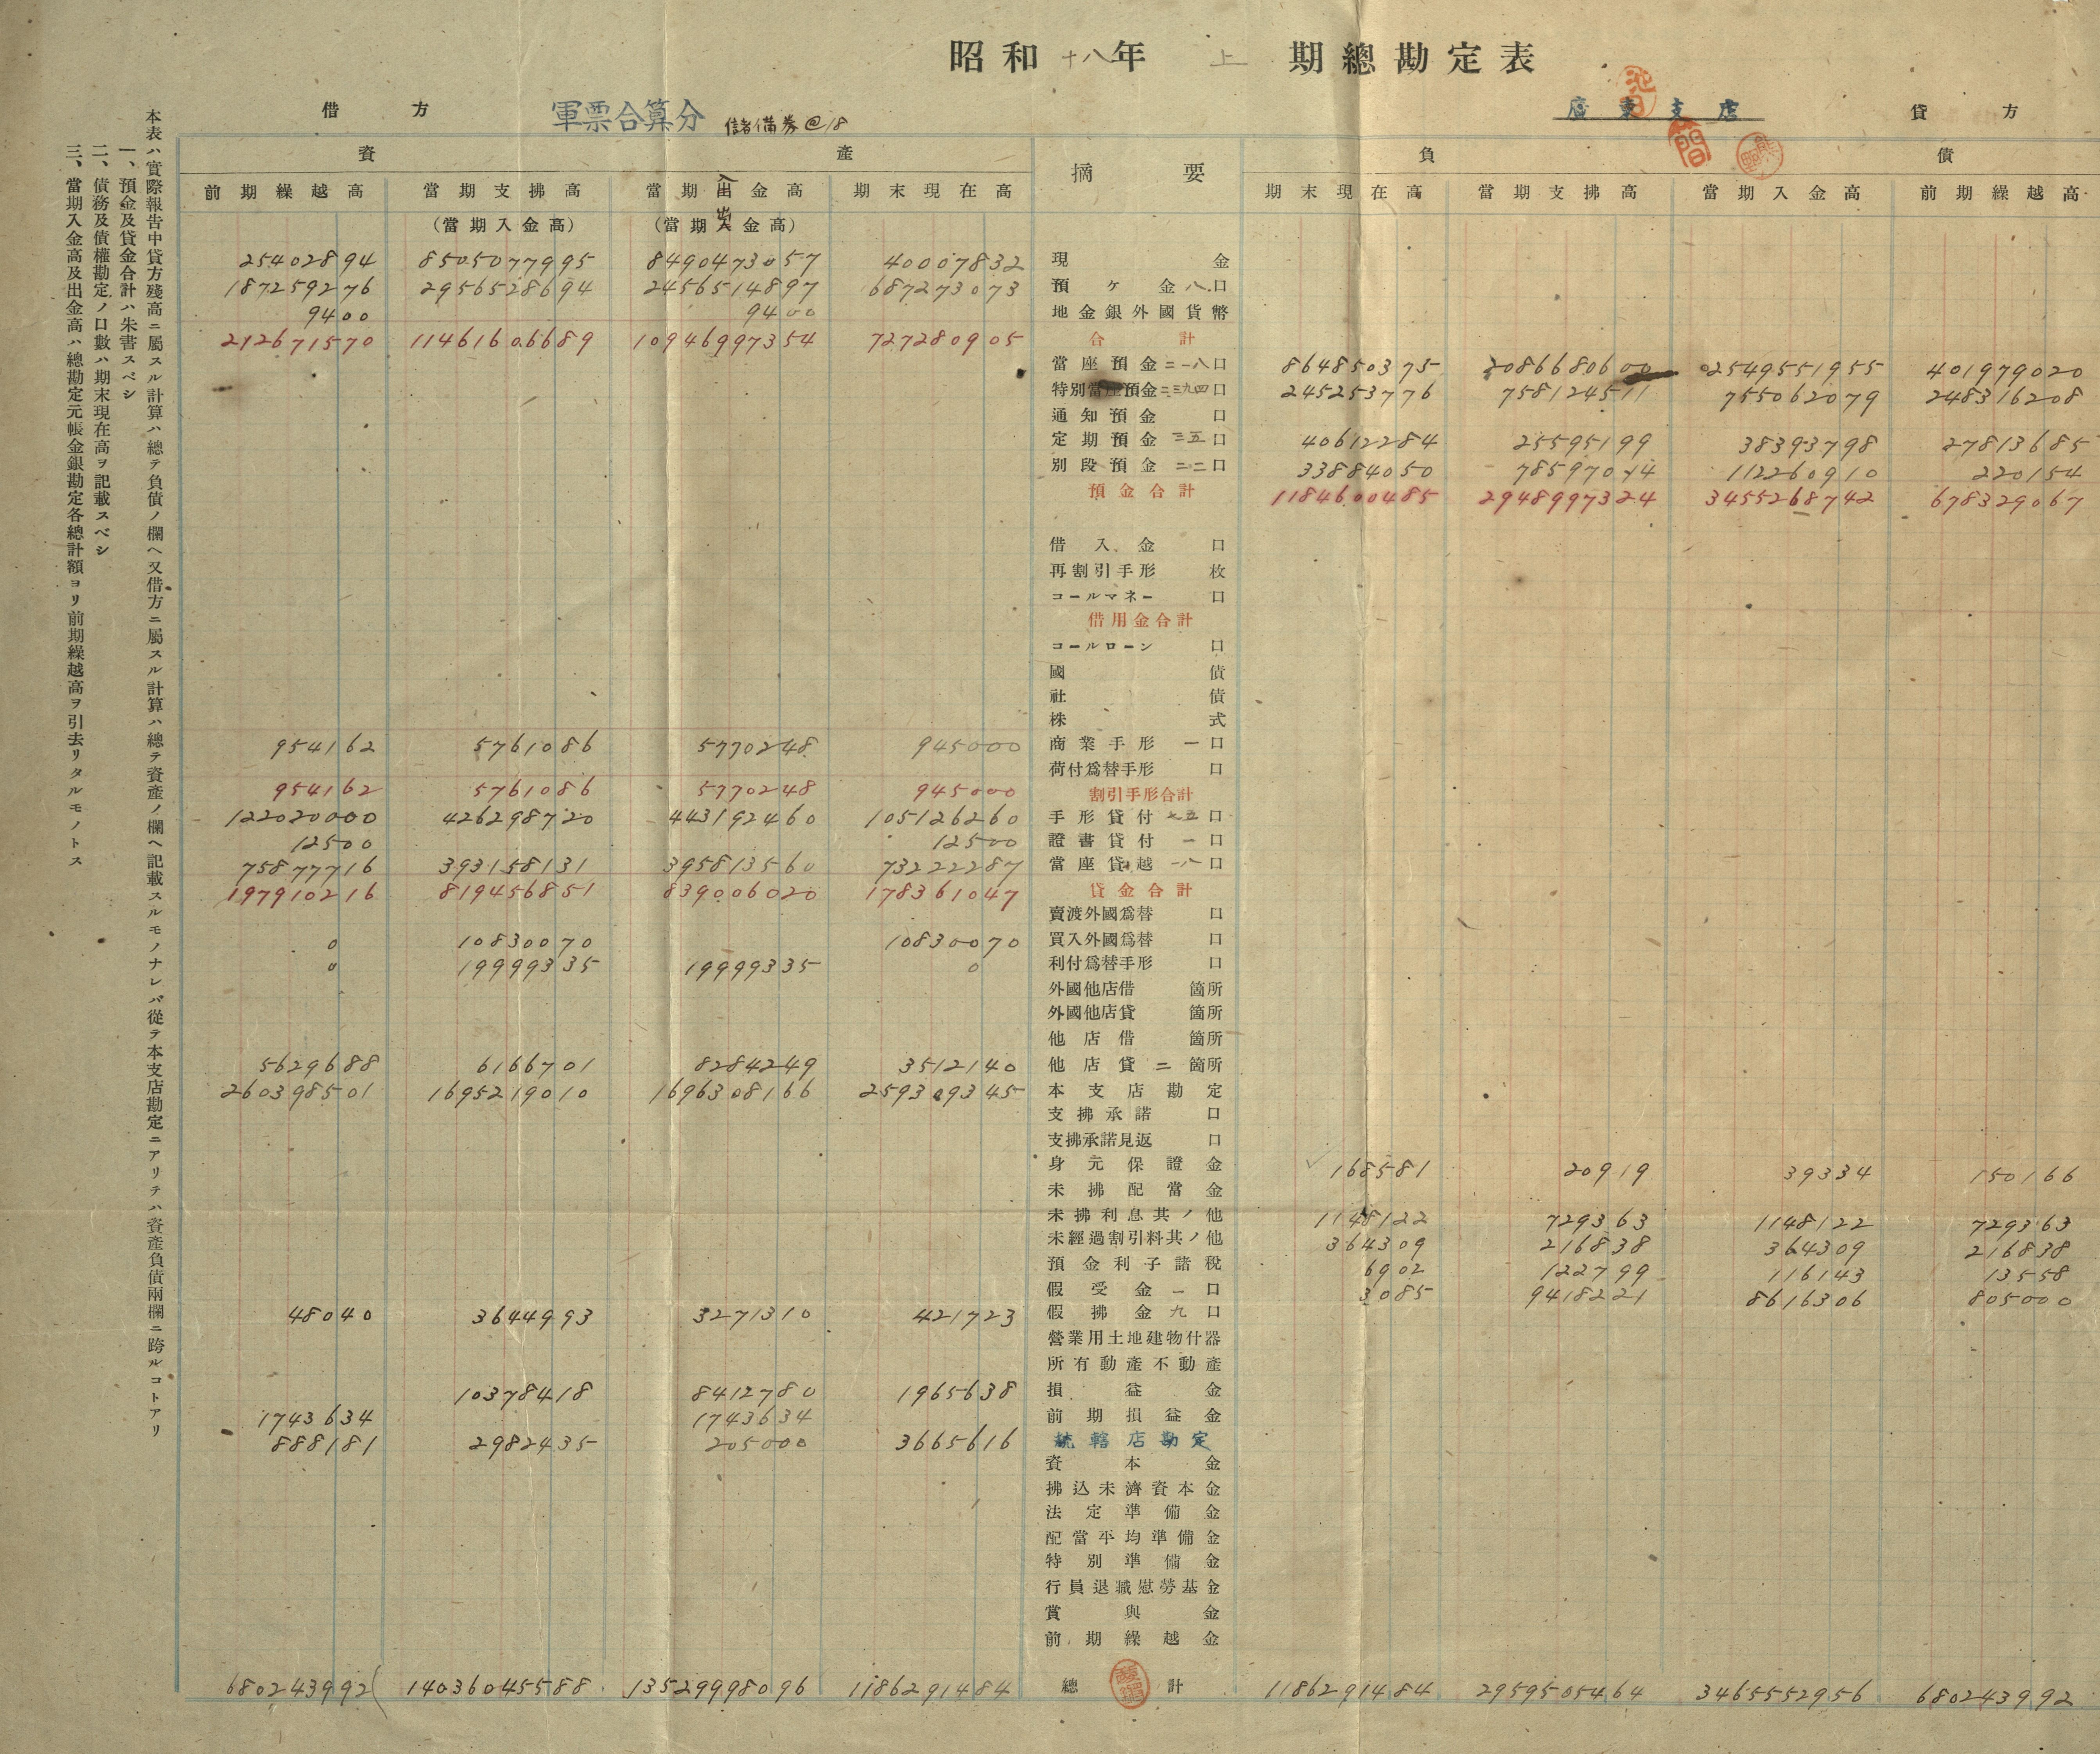 昭和十八年 上 期總勘定表
借方 軍票合算分 儲備券@18 廣東支店 貸方
資產 摘要 負債
前期繰越高 當期支拂高 當期入金高 期末現在高 期末現在高 當期支拂高 當期入金高 前期繰越高
(當期入金高) (當期出金高)
25402894 8505077995 8490473057 40007832 現金
187259276 2956528694 2456514897 687273073 預ケ金八口
9400 9400 地金銀外國貨幣
212671570 11461606689 10946997354 727280905 合計
當座預金二一八口 864850375 2086680600 2549551955 401979020
特別當座預金二三九四口 245253776 758124511 755062079 248316208
通知預金 口
定期預金 三五口 40612284 25595199 38393798 27813685
別段預金 二二口 33884050 78597014 112260910 220154
預金合計 1184600485 2948997324 3455268742 678329067
借入金 口
再割引手形 枚
コールマネー 口
借用金合計
コールローン 口
國債
社債
株式
954162 5761086 5770248 945000 商業手形 一口
荷付爲替手形 口
954162 5761086 5770248 945000 割引手形合計
122020000 426298720 443192460 105126260 手形貸付 七五口
12500 12500 證書貸付 一口
75877716 393158131 395813560 73222287 當座貸越 一八口
197910216 819456851 839006020 178361047 貸金合計
賣渡外國爲替 口
0 10830070 10830070 買入外國爲替 口
0 19999335 19999335 0 利付爲替手形 口
外國他店借 箇所
外國他店貸 箇所
他店借 箇所
5629688 6166701 8284249 3512140 他店貸 二箇所
260398501 1695219010 1696308166 259309345 本支店勘定
支拂承諾 口
支拂承諾見返 口
身元保證金 168581 20919 39334 150166
未拂配當金
未拂利息其ノ他 1148122 729363 1148122 729363
未經過割引料其ノ他 364309 216838 364309 216838
預金利子諸稅 6902 122799 116143 13558
假受金 一口 3085 9418221 8616306 805000
48040 3644993 3271310 421723 假拂金 九口
營業用土地建物什器
所有動產不動產
10378418 8412780 1965638 損益金
1743634 1743634 前期損益金
888181 2982435 205000 3665616 統轄店勘定
資本金
拂込未濟資本金
法定準備金
配當平均準備金
特別準備金
行員退職慰勞基金
賞與金
前期繰越金
680243992 14036045588 13529998096 1186291484 總計 1186291484 2959505464 3465552956 680243992
本表ハ實際報告中貸方殘高ニ屬スル計算ハ總テ負債ノ欄へ又借方ニ屬スル計算ハ總テ資產ノ欄へ記載スルモノナレバ從テ本支店勘定ニアリテハ資產負債兩欄ニ跨ルコトアリ
一、預金及貸金合計ハ朱書スベシ
二、債務及債權勘定ノ口數ハ期末現在高ヲ記載スベシ
三、當期入金高及出金高ハ總勘定元帳金銀勘定各總計額ヨリ前期繰越高ヲ引去リタルモノトス